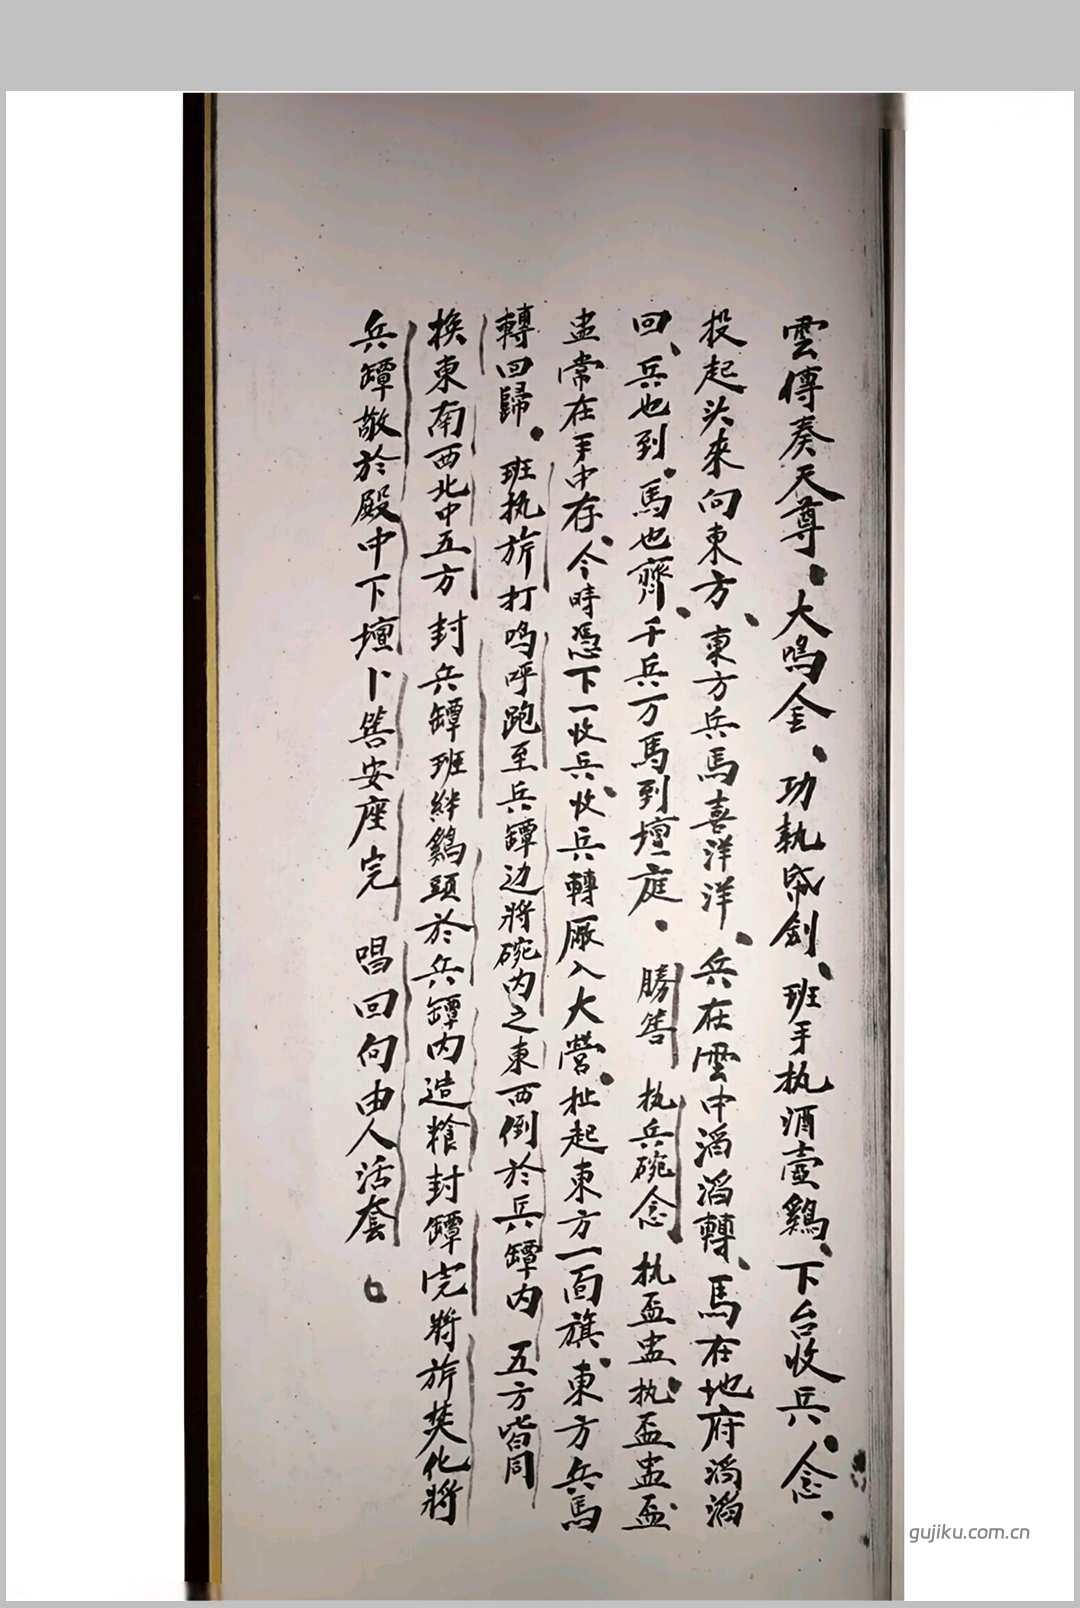 雲傳奏天尊。大鳴金、功執帋劍、班手执酒壺鷄、下台收兵、念.
投起头來向東方、東方兵馬喜洋洋、兵在雲中滔滔轉、馬在地府滔滔
回、兵也到、馬也齊、千兵万馬到壇庭. 勝筶 执兵碗念 执盃盅执盃盅盃
盅常在手中存、今時憑下一收兵、收兵轉厰入大營、扯起東方一面旗、東方兵馬
轉回歸、班执旂打鸣呼跑至兵罈边將碗内之東西倒於兵罈内 五方皆同
换東南西北中五方 封兵罈班絆鷄頭於兵罈内造粮封罈完將旂焚化將
兵罈敬於殿中下壇卜筶安座完 唱回向由人活套
gujiku.com.cn